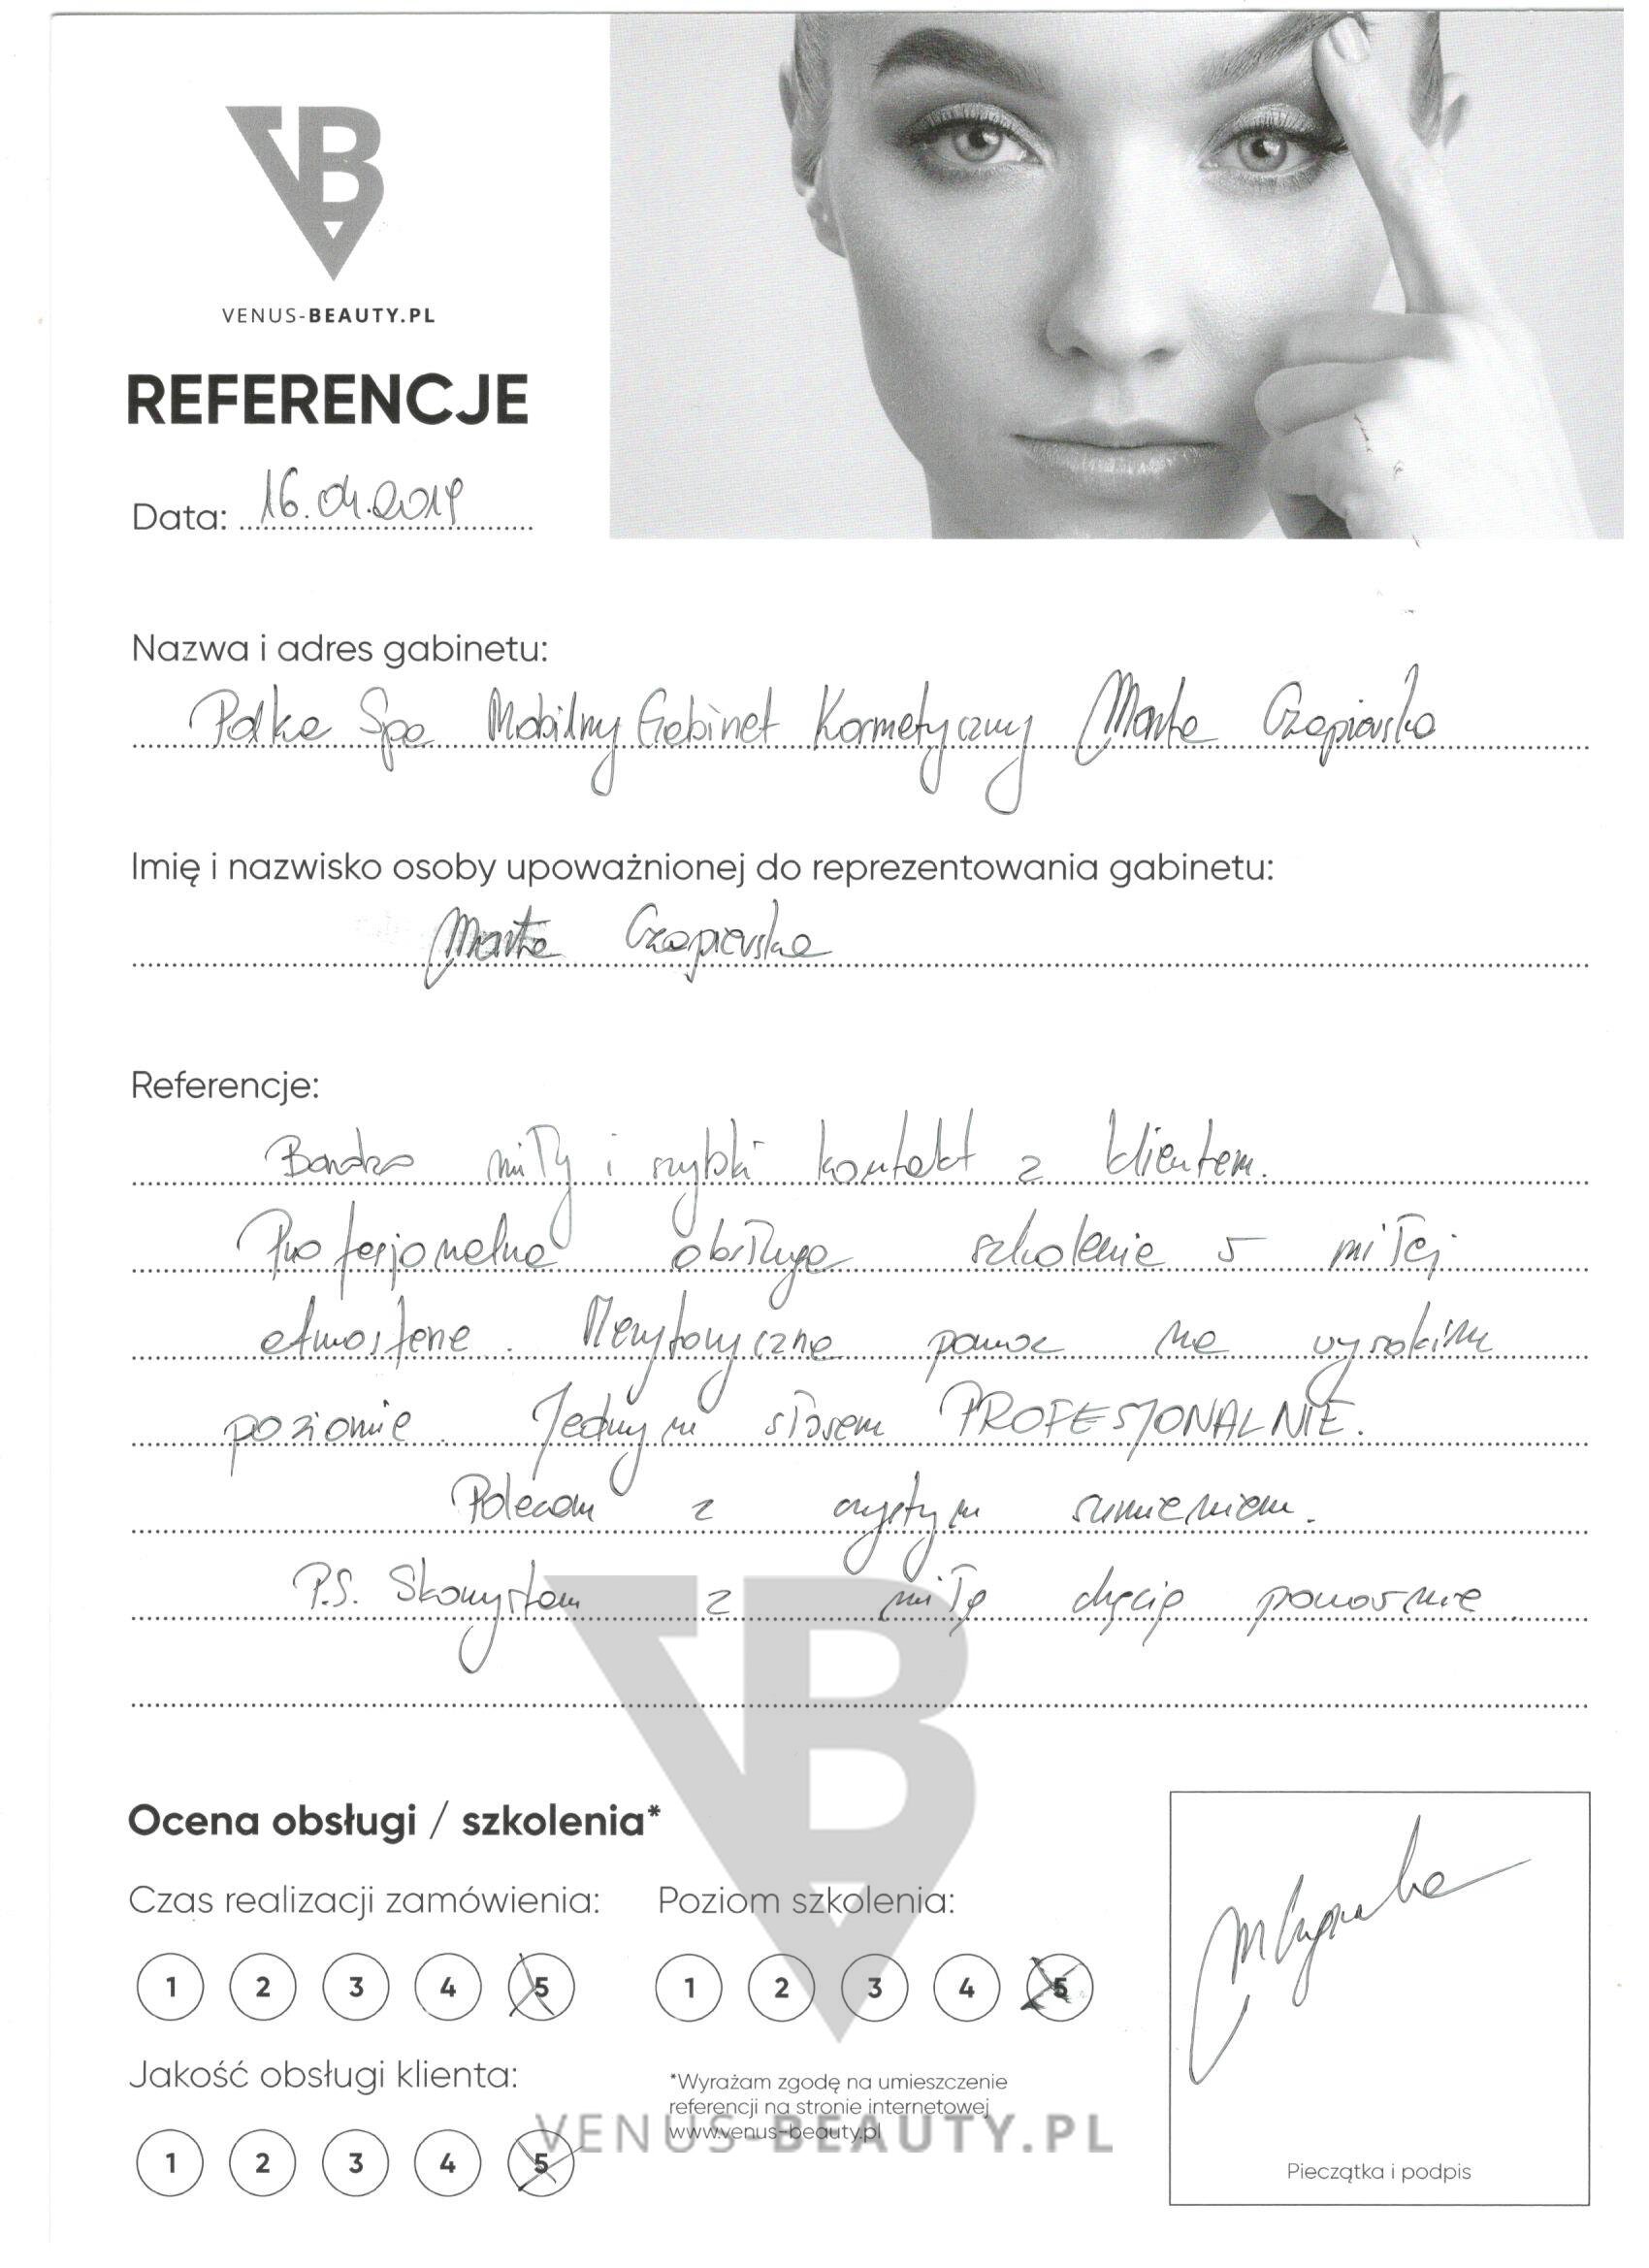 VB
VENUS-BEAUTY.PL
REFERENCJE
Data: 16.04.2019
Nazwa i adres gabinetu:
Polka Spa Mobilny Gabinet Kosmetyczny Marta Czapiewska
Imię i nazwisko osoby upoważnionej do reprezentowania gabinetu:
Marta Czapiewska
Referencje:
Bardzo miły i szybki kontakt z klientem.
Profesjonalna obsługa szkolenie w miłej
atmosferze. Merytoryczna pomoc na wysokim
poziomie. Jednym słowem PROFESJONALNIE.
Polecam z czystym sumieniem.
P.S. Skorzystam z miłą chęcią ponownie.
Ocena obsługi / szkolenia*
Czas realizacji zamówienia: Poziom szkolenia:
1 2 3 4 5 1 2 3 4 5
Jakość obsługi klienta:
1 2 3 4 5
*Wyrażam zgodę na umieszczenie
referencji na stronie internetowej
www.venus-beauty.pl
VB
VENUS-BEAUTY.PL
Pieczątka i podpis